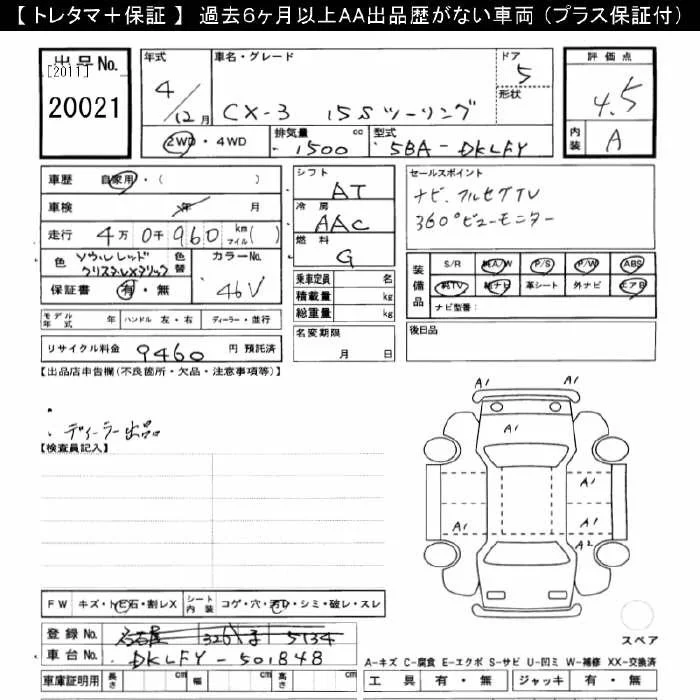 【 トレタマ＋保証 】 過去6ヶ月以上AA出品歴がない車両（プラス保証付）
出品No.
[2011]
20021
年式
4/12月
車名・グレード
CX-3 15S ツーリング
ドア
5
形状
評価点
4.5
内装
A
2WD・4WD
排気量 1500 cc
型式 5BA-DKLFY
車歴 自家用・( )
車検 年 月
走行 4万0千960 km マイル( )
色 ソウルレッドクリスタルメタリック
色替
カラーNo.
46V
保証書 有・無
シフト
AT
冷房
AAC
燃料
G
乗車定員 名
積載量 kg
総重量 kg
セールスポイント
ナビ、フルセグTV
360°ビューモニター
装備品
S/R 純A/W P/S P/W ABS
純TV 純ナビ 革シート 外ナビ エアB
ナビ型番：
モデル年式 年 ハンドル 左・右 ディーラー・並行
名変期限
月 日
後日品
リサイクル料金 9460 円 預託済
【出品店申告欄(不良箇所・欠品・注意事項等)】
・
、ディーラー出品
【検査員記入】
A1 A1
A1
A1
A1 A1
A2
FW キズ・ト石・割レX シート内装 コゲ・穴・汚レ・シミ・破レ・スレ
登録No. 名古屋 326 ま 5134
車台No. DKLFY-501848
スペア
A-キズ C-腐食 E-エクボ S-サビ U-凹ミ W-補修 XX-交換済
車庫証明用 長さ cm 幅 cm 高さ cm
工具 有・無 ジャッキ 有・無